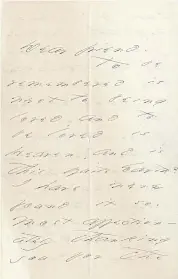 Dear friend.
To be
remembered is
next to being
loved, and to
be loved is
Heaven, and is
this quite Earth?
I have never
found it so.
Most affection-
ately thanking
you for the